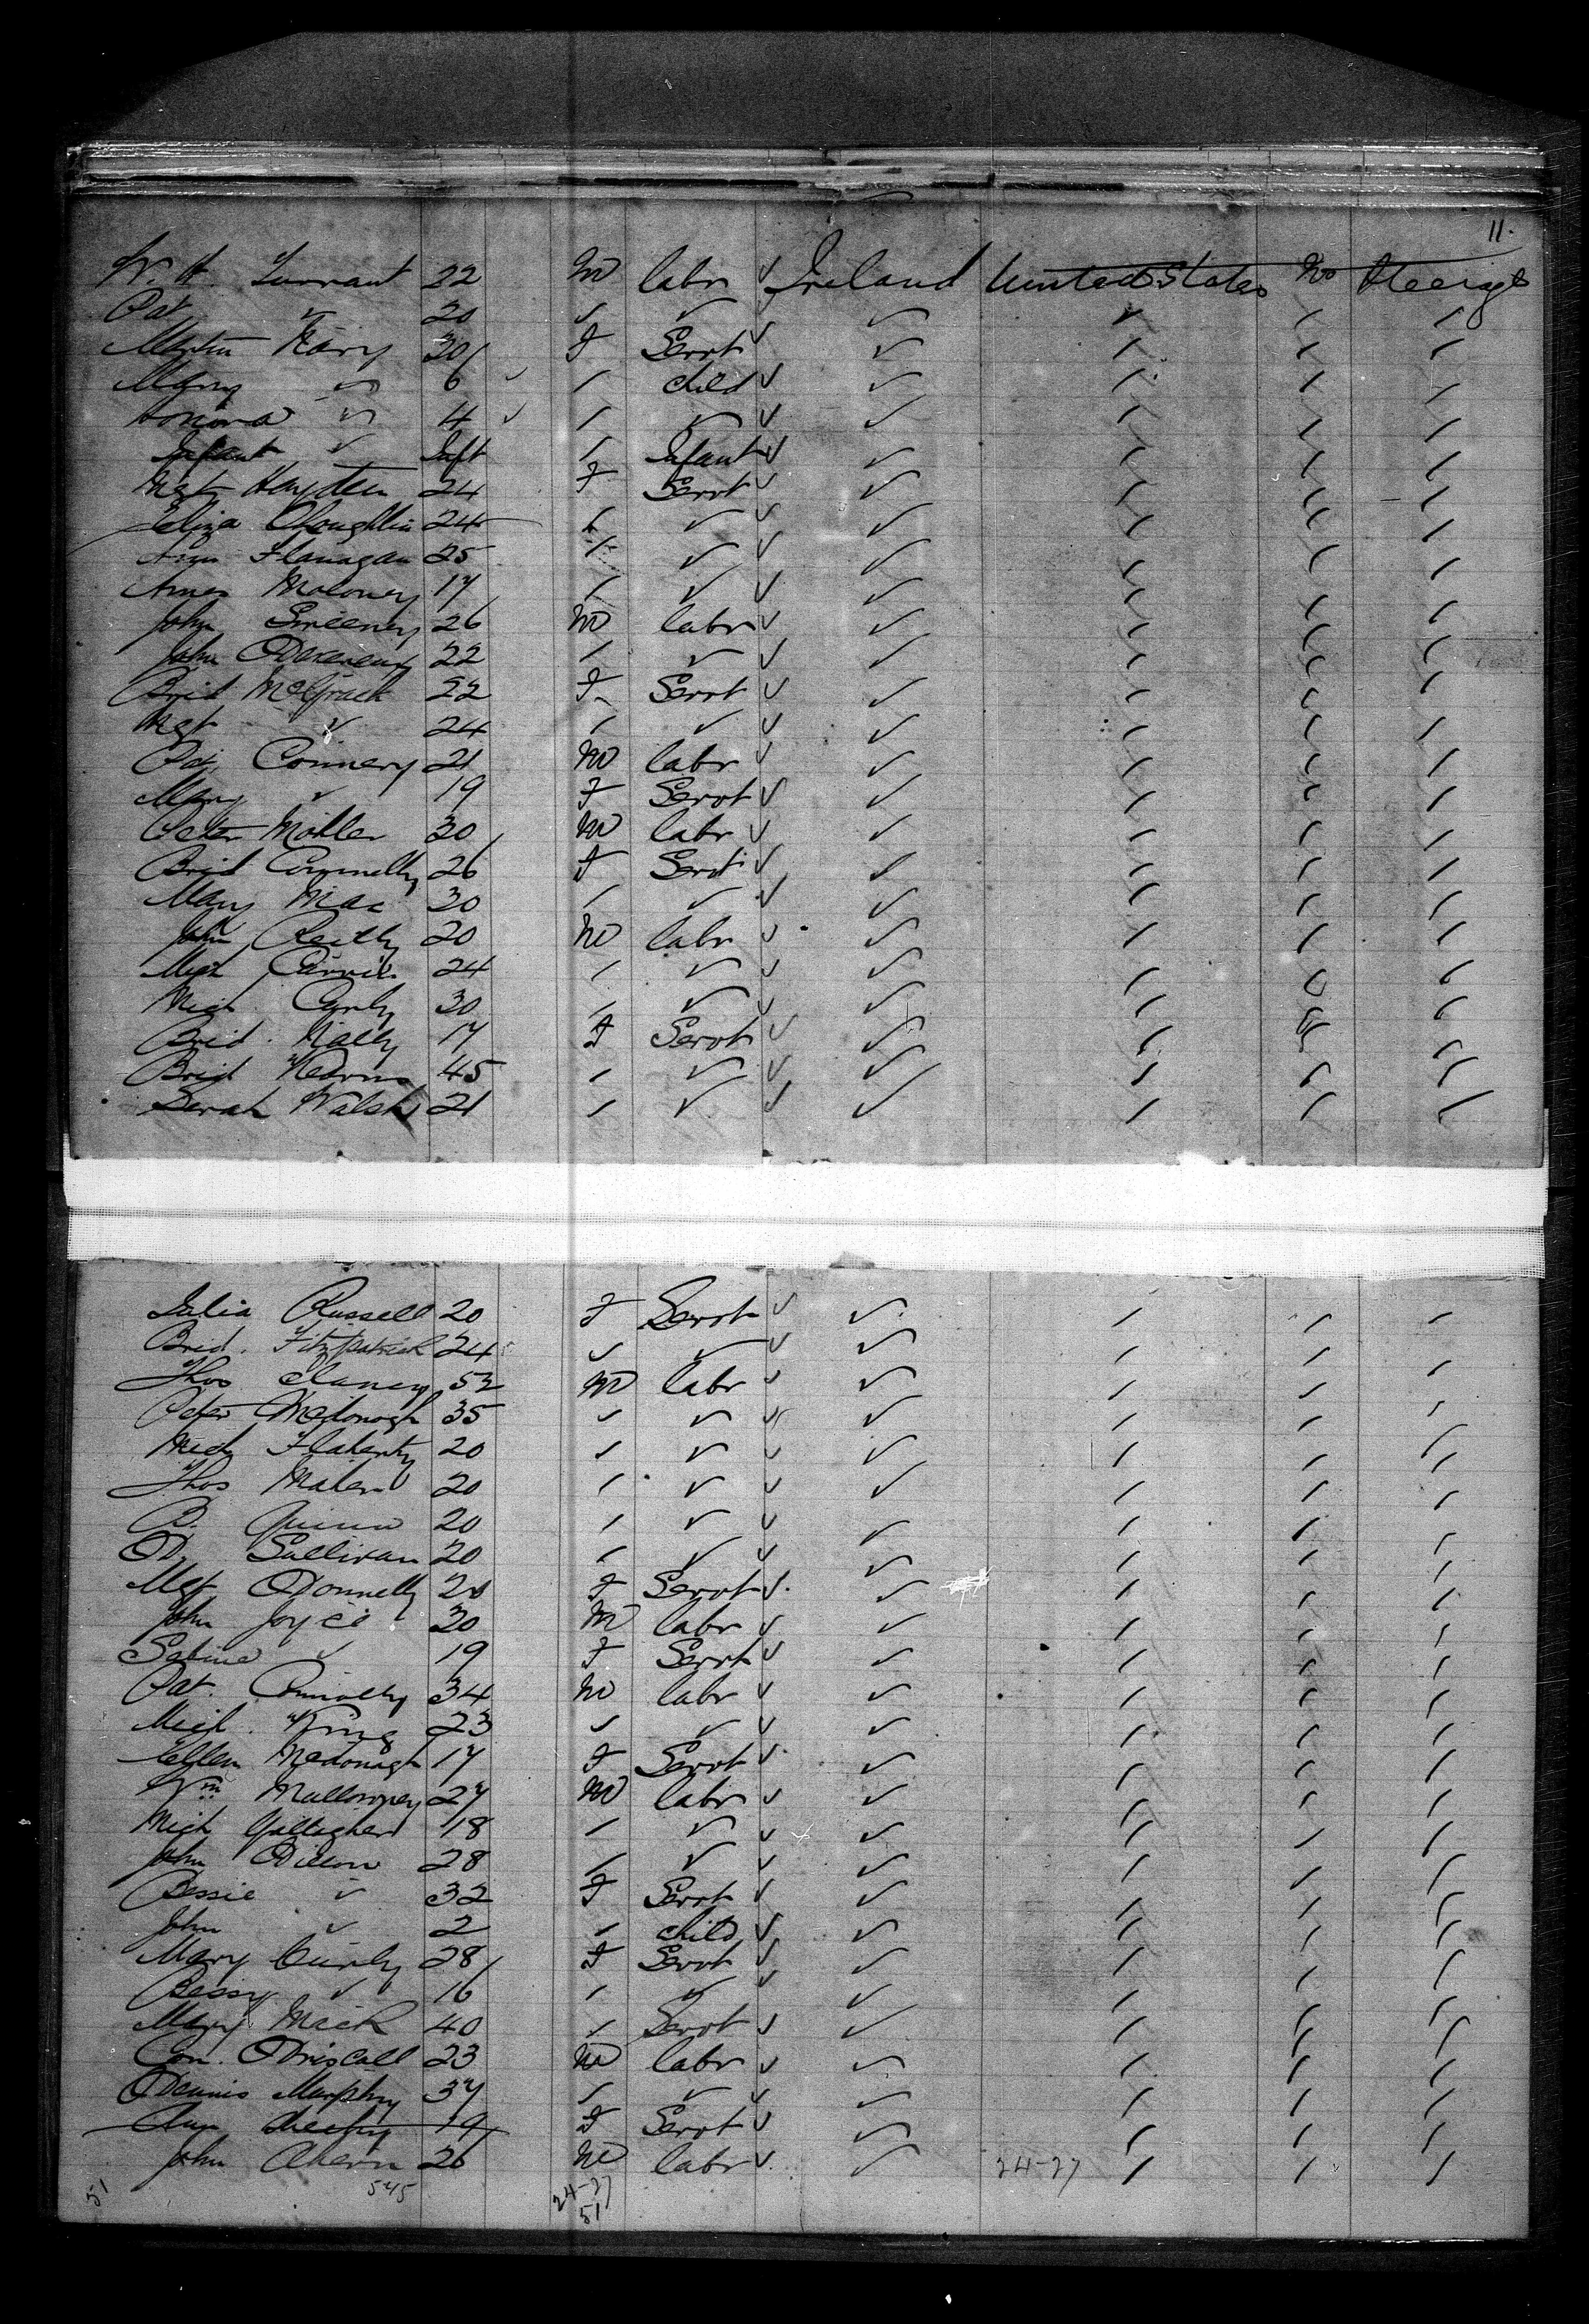 11.
W. H. Turrant 22 M labr ✓ Ireland United States No Steerage
Pat ✓ 20 ✓ ✓ ✓ ✓ ✓ / /
Martin 30 F Servt ✓ ✓ / / /
Mary ✓ 6 ✓ / child ✓ ✓ / / /
Honora ✓ 4 ✓ / ✓ ✓ ✓ / / /
Infant ✓ Inft / Infant ✓ ✓ / / /
Mgt Hayden 24 F Servt ✓ ✓ / / /
Eliza OLoughlin 24 / ✓ ✓ ✓ / / /
Flanagan 25 / ✓ ✓ ✓ / / /
Moloney 17 / ✓ ✓ ✓ / / /
John Sweeney 26 M labr ✓ ✓ / / /
John 22 / ✓ ✓ ✓ / / /
Brid McGrath 22 F Servt ✓ ✓ / / /
Mgt ✓ 24 / ✓ ✓ ✓ / / /
Pat. Connery 21 M labr ✓ ✓ / / /
Mary ✓ 19 F Servt ✓ ✓ / / /
Peter 30 M labr ✓ ✓ / / /
Brid Connelly 26 F Servt ✓ ✓ / / /
Mary 30 / ✓ ✓ ✓ / / /
John Reilly 20 M labr ✓ ✓ / / /
Mich 24 / ✓ ✓ ✓ / / /
Mich 30 / ✓ ✓ ✓ / / /
Brid. Nally 17 F Servt ✓ ✓ / / /
Brid Kearns 45 / ✓ ✓ ✓ / / /
Sarah Walsh 21 / ✓ ✓ ✓ / / /
Julia Russell 20 F Servt ✓ ✓ / / /
Brid. Fitzpatrick 24 ✓ ✓ ✓ ✓ / / /
Thos Clancy 52 M labr ✓ ✓ / / /
Peter McDonogh 35 ✓ ✓ ✓ ✓ / / /
Mich Flaherty 20 / ✓ ✓ ✓ / / /
Thos Maher 20 / ✓ ✓ ✓ / / /
Quinn 20 / ✓ ✓ ✓ / / /
D. Sullivan 20 / ✓ ✓ ✓ / / /
Mgt ODonnelly 20 F Servt ✓ ✓ / / /
John Joyce 20 M labr ✓ ✓ / / /
Sabina ✓ 19 F Servt ✓ ✓ / / /
Pat. Connolly 34 M labr ✓ ✓ / / /
Mich. King 23 ✓ ✓ ✓ ✓ / / /
Ellen McDonagh 17 F Servt ✓ ✓ / / /
Wm Mullowney 27 M labr ✓ ✓ / / /
Mich Gallagher 18 / ✓ ✓ ✓ / / /
John Dillon 28 / ✓ ✓ ✓ / / /
Bessie ✓ 32 F Servt ✓ ✓ / / /
John ✓ 2 / child ✓ ✓ / / /
Mary Curly 28 F Servt ✓ ✓ / / /
Bessy ✓ 16 / ✓ ✓ ✓ / / /
Mary Mack 40 / Servt ✓ ✓ / / /
Con. ODriscoll 23 M labr ✓ ✓ / / /
Dennis Murphy 37 / ✓ ✓ ✓ / / /
Ann Sheehy 19 F Servt ✓ ✓ / / /
John Ahern 26 M labr ✓ ✓ 24-27 / / /
51 545 24-27
51